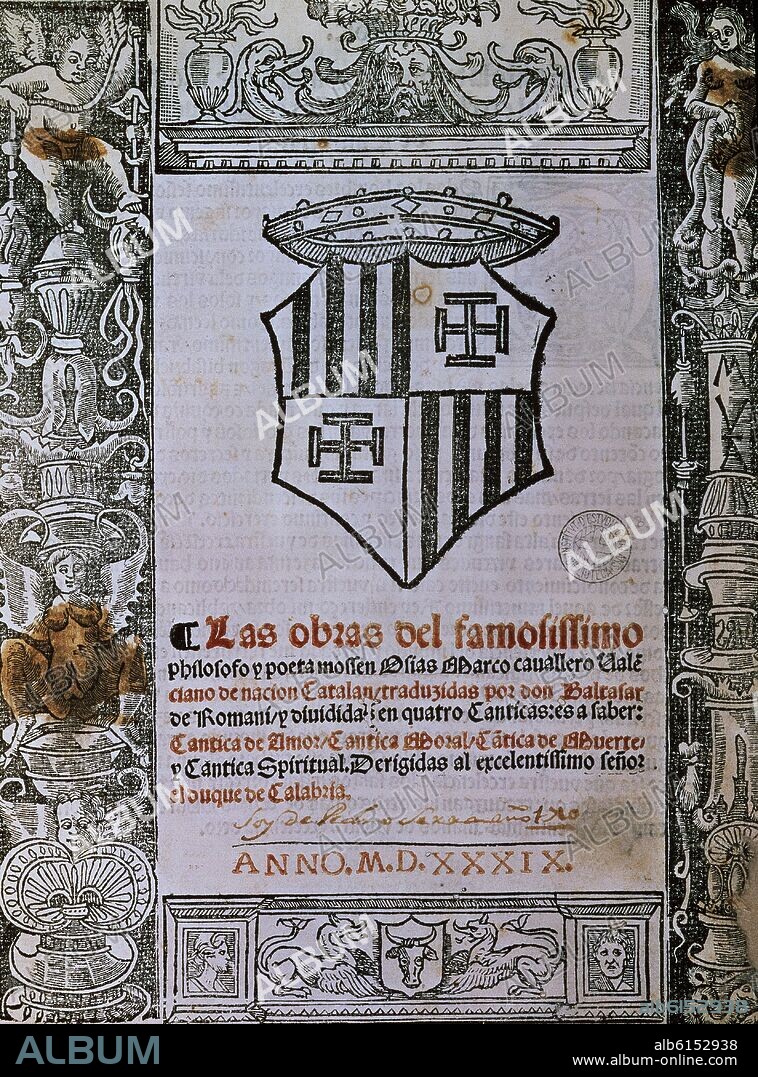 ¶ Las obras del famosissimo
philosofo y poeta mossen Osias Marco cavallero Valẽ
ciano de nacion Catalan/traduzidas por don Baltasar
de Romani/y dividida⁹ en quatro Canticas: es a saber:
Cantica de Amor/Cantica Moral/Cãtica de Muerte/
y Cantica Spiritual. Derigidas al excelentissimo señor
el duque de Calabria.
Soy de Pedro
ANNO. M. D. XXXIX.
ALBUM
alb6152938
www.album-online.com